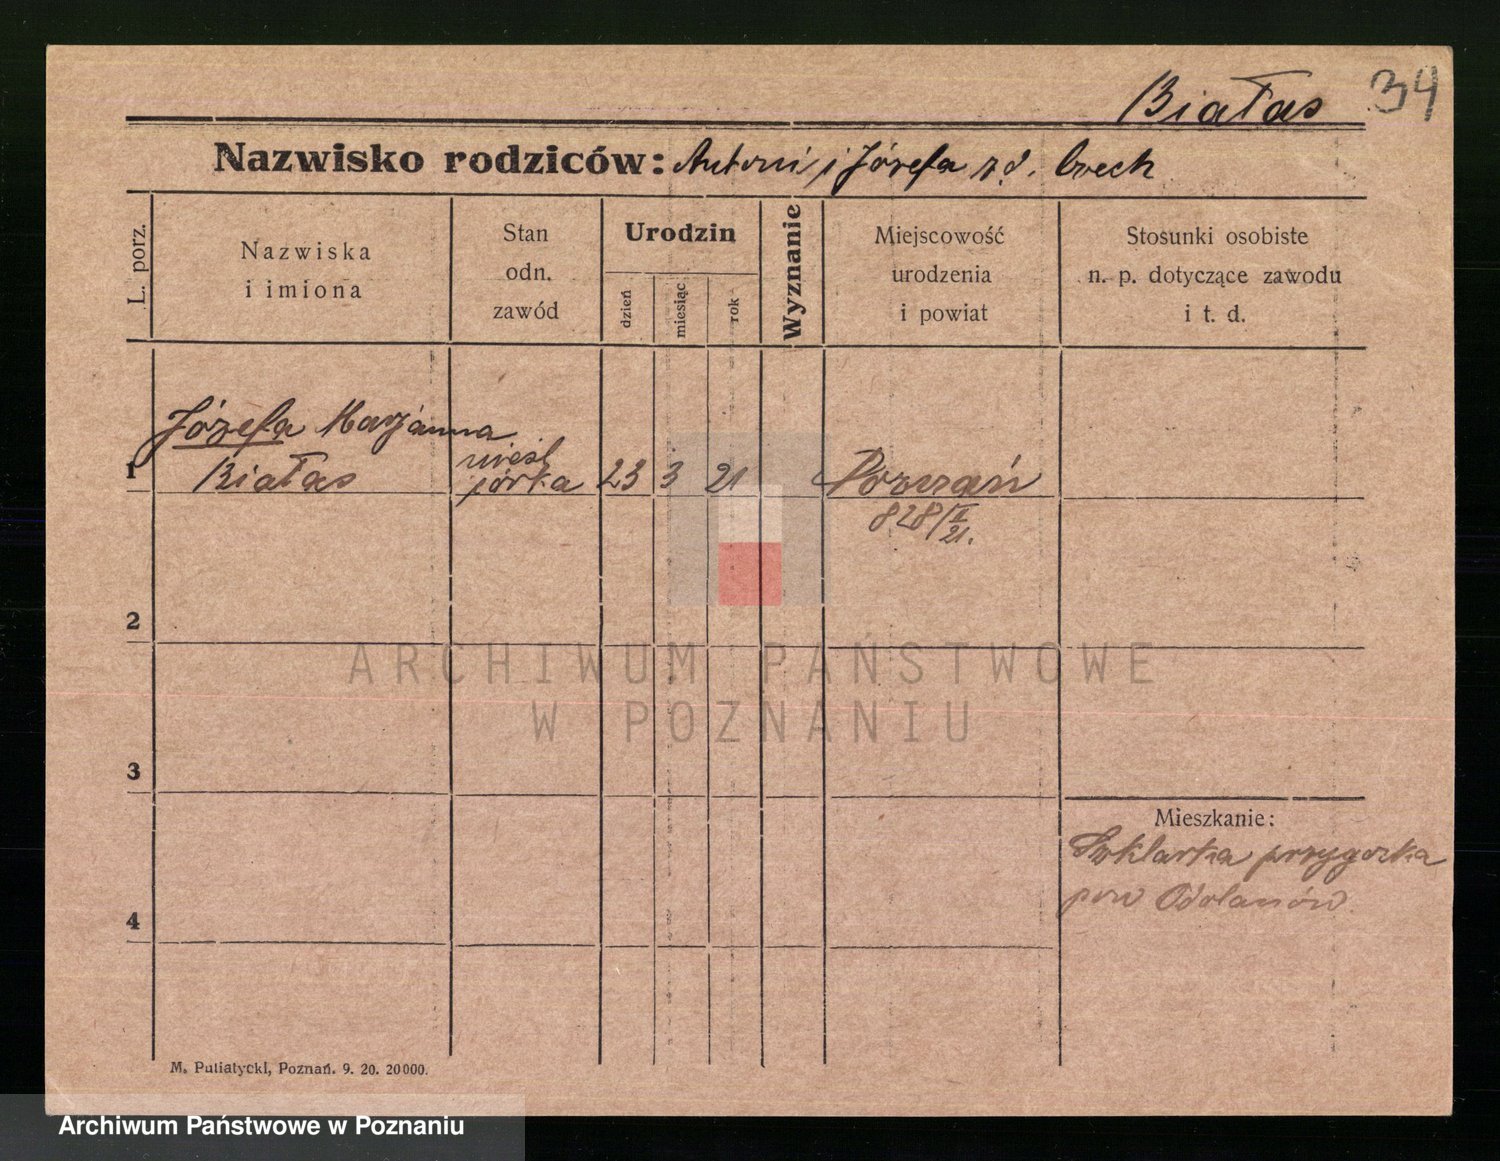 Białas 34
Nazwisko rodziców: Antoni i Józefa z d. Czech
L. porz.
Nazwiska
i imiona
Stan
odn.
zawód
Urodzin
dzień
miesiąc
rok
Wyznanie
Miejscowość
urodzenia
i powiat
Stosunki osobiste
n. p. dotyczące zawodu
i t. d.
Józefa Marjanna
1 Białas
nieśl
córka 23 3 21 Poznań
828/II
21.
2
3
4
Mieszkanie:
Szklarka przygocka
pow Odolanów
M. Putiatycki, Poznań. 9. 20. 20000.
ARCHIWUM PAŃSTWOWE
W POZNANIU
Archiwum Państwowe w Poznaniu